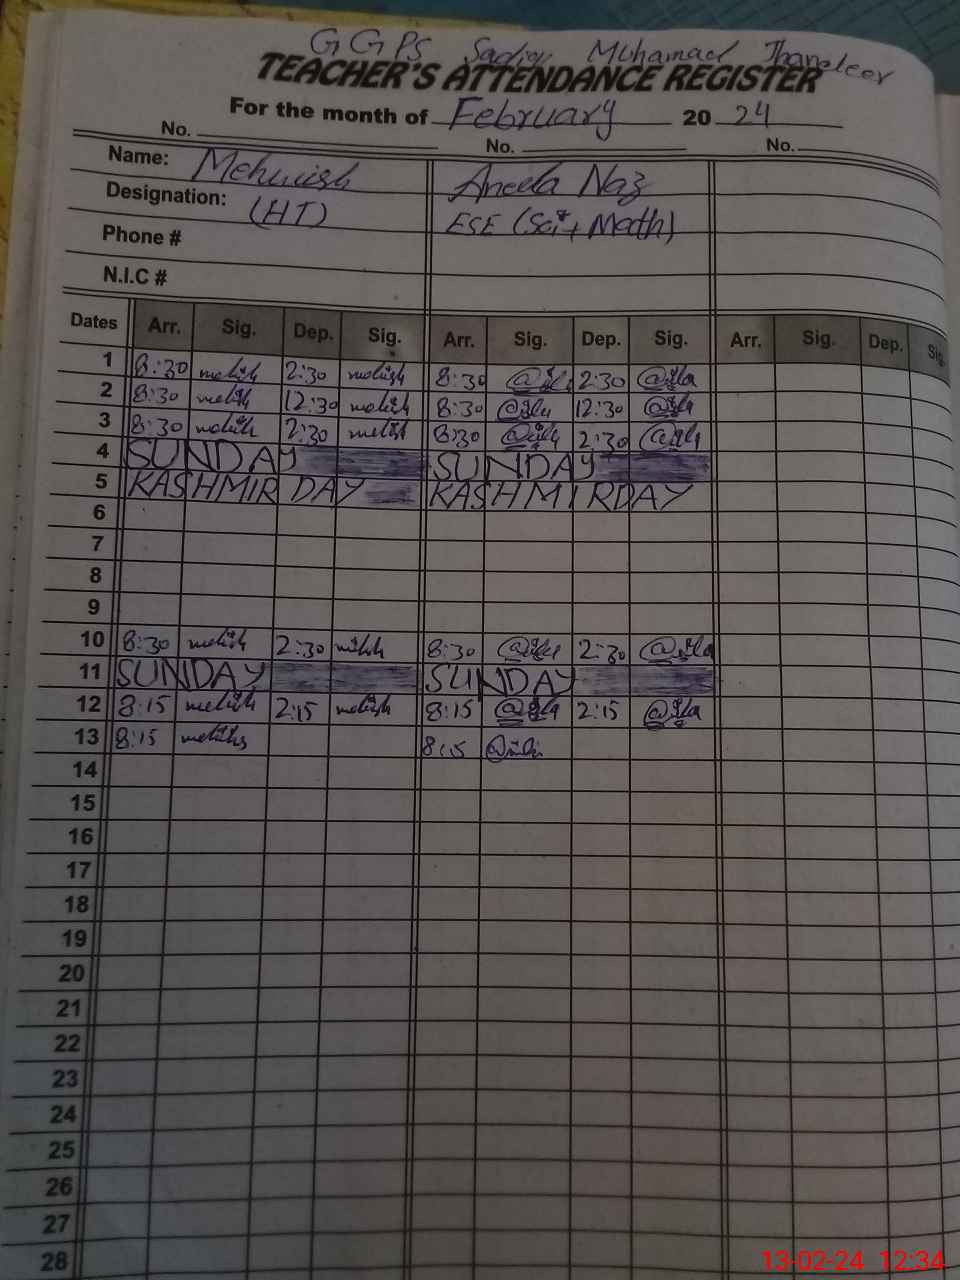 GGPS Sadiq Muhamad Thandeer
TEACHER'S ATTENDANCE REGISTER
For the month of February 20 24
No. No. No.
Name: Mehwish Aneela Naz
Designation: (HT) ESE (Sci + Math)
Phone #
N.I.C #
Dates Arr. Sig. Dep. Sig. Arr. Sig. Dep. Sig. Arr. Sig. Dep. Sig
1 8:30 2:30 8:30 2:30
2 8:30 12:30 8:30 12:30
3 8:30 2:30 8:30 2:30
4 SUNDAY SUNDAY
5 KASHMIR DAY KASHMIRDAY
6
7
8
9
10 8:30 2:30 8:30 2:30
11 SUNDAY SUNDAY
12 8:15 2:15 8:15 2:15
13 8:15 8:15
14
15
16
17
18
19
20
21
22
23
24
25
26
27
28
13-02-24 12:34